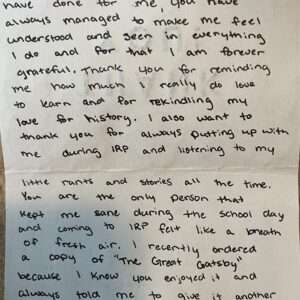 have done for me, you have
always managed to make me feel
understood and seen in everything
I do and for that I am forever
grateful. Thank you for reminding
me how much I really do love
to learn and for rekindling my
love for history. I also want to
thank you for always putting up with
me during IRP and listening to my
little rants and stories all the time.
You are the only person that
kept me sane during the school day
and coming to IRP felt like a breath
of fresh air. I recently ordered
a copy of "The Great Gatsby"
because I know you enjoyed it and
always told me to give it another